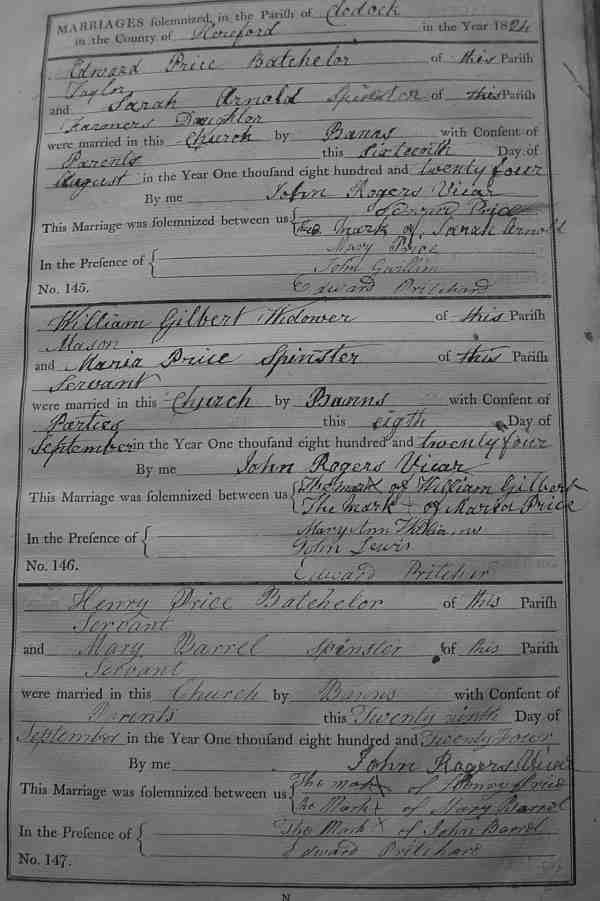 MARRIAGES solemnized in the Parish of Clodock
in the County of Hereford in the Year 1824
Edward Price Batchelor of this Parish
Taylor
and Sarah Arnold Spinster of this Parish
Farmers Daughter
were married in this Church by Banns with Consent of
Parents this Sixteenth Day of
August in the Year One thousand eight hundred and twenty four
By me John Rogers Vicar
This Marriage was solemnized between us { Edward Price
The mark of Sarah Arnold
In the Presence of { Mary Price
John
No. 145. Edward Pritchard
William Gilbert Widower of this Parish
Mason
and Maria Price Spinster of this Parish
Servant
were married in this Church by Banns with Consent of
Parties this eigth Day of
September in the Year One thousand eight hundred and twenty four
By me John Rogers Vicar
This Marriage was solemnized between us { The mark of William Gilbert
The Mark of Maria Price
In the Presence of { Mary Ann Williams
John Lewis
No. 146. Edward Pritcher
Henry Price Batchelor of this Parish
Servant
and Mary Barrel spinster of this Parish
Servant
were married in this Church by Banns with Consent of
Parents this Twenty ninth Day of
September in the Year One thousand eight hundred and Twenty Four
By me John Rogers Vicar
This Marriage was solemnized between us { The mark of Henry Price
the Mark of Mary Barrel
In the Presence of { The Mark X of John Barrel
No. 147. Edward Pritchard
N